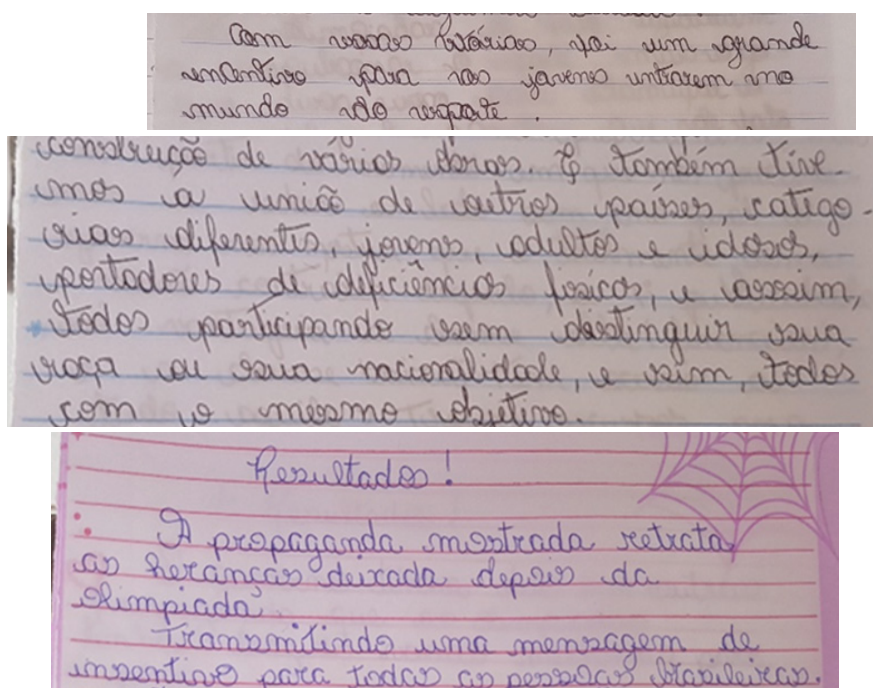 com nossos horários, foi um grande
incentivo para nos jovens entrarem no
mundo do esporte.
construção de vários obras. E também tive-
mos a união de outros países, catego-
rias diferentes, jovens, adultos e idosos,
portadores de deficiências fisícas, e assim,
todos participando sem distinguir sua
raça ou sua nacionalidade, e sim, todos
com o mesmo objetivo.
Resultados!
A propaganda mostrada retrata
as heranças deixada depois da
olimpiada.
Transmitindo uma mensagem de
insentivo para todas as pessoas brasileiras.